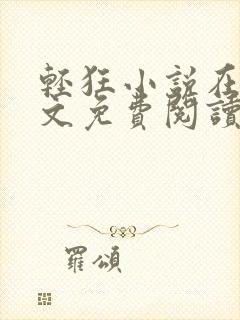 輕狂小說在
文免費閱讀
羅頌